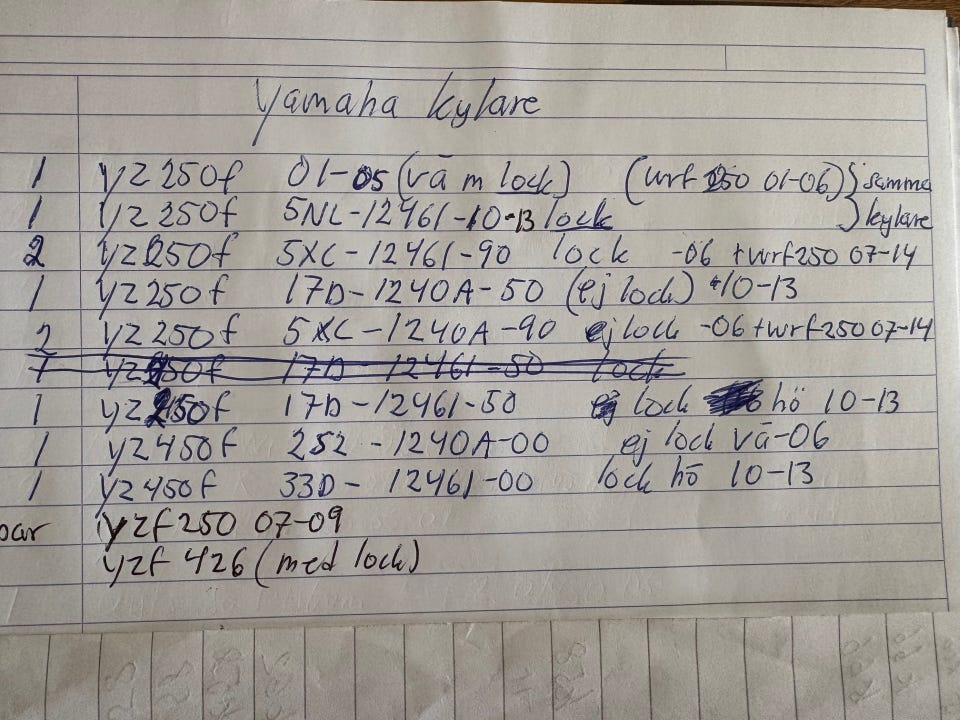 Yamaha kylare
1 YZ 250f 01-05 (vä m lock) (wrf 250 01-06) } samma
1 YZ 250f 5NL-12461-10-13 lock } kylare
2 YZ 250f 5XC-12461-90 lock -06 +wrf250 07-14
1 YZ 250f 17D-1240A-50 (ej lock) 10-13
2 YZ 250f 5XC-1240A-90 ej lock -06+wrf250 07-14
1 YZ 250f 17D-12461-50 lock
1 YZ 250f 17D-12461-50 lock hö 10-13
1 YZ 450f 2S2-1240A-00 ej lock vä-06
1 YZ 450f 33D-12461-00 lock hö 10-13
par yzf 250 07-09
yzf 426 (med lock)